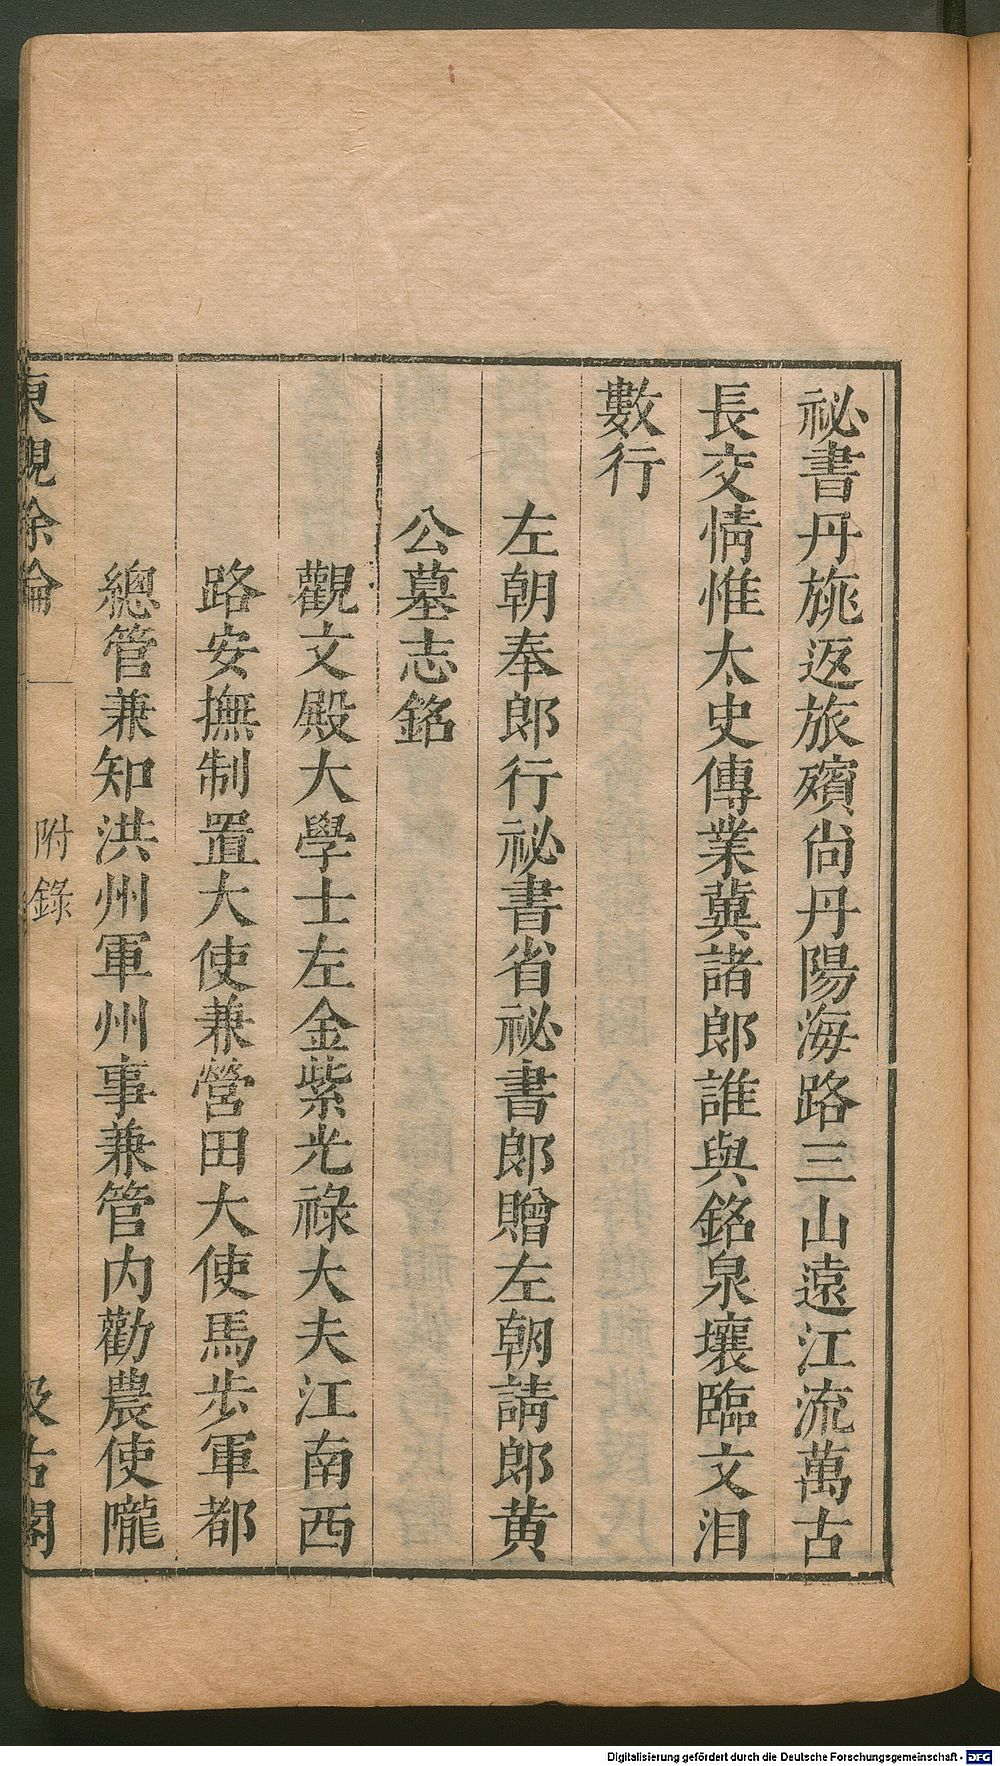 祕書丹旐返旅殯尙丹陽海路三山遠江流萬古
長交情惟太史傳業冀諸郎誰與銘泉壤臨文泪
數行
左朝奉郎行祕書省祕書郎贈左朝請郎黄
公墓志銘
觀文殿大學士左金紫光祿大夫江南西
路安撫制置大使兼營田大使馬步軍都
總管兼知洪州軍州事兼管內勸農使隴
東觀餘論
附錄
汲古閣
Digitalisierung gefördert durch die Deutsche Forschungsgemeinschaft - DFG